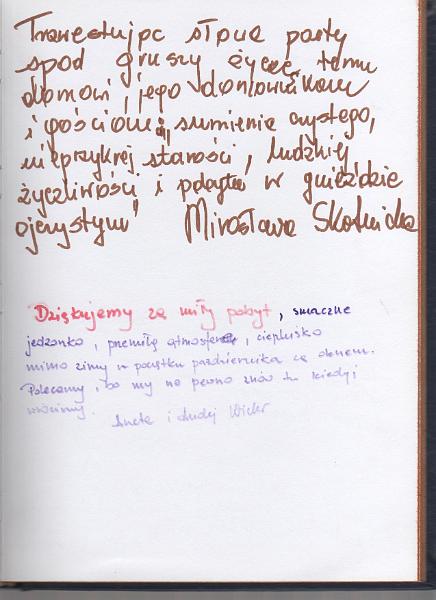 Trawestując słowa poety
spod gruszy życzę temu
domowi, jego domownikom
i gościom „sumienia czystego,
nieprzykrej starości, ludzkiej
życzliwości i pobytu w gnieździe
ojczystym" Mirosława Skotnicka
Dziękujemy za miły pobyt, smaczne
jedzonko, przemiłą atmosferę, cieplusko
mimo zimy w początku października za oknem.
Polecamy, bo my na pewno znów tu kiedyś
wrócimy. Aneta i Andrzej